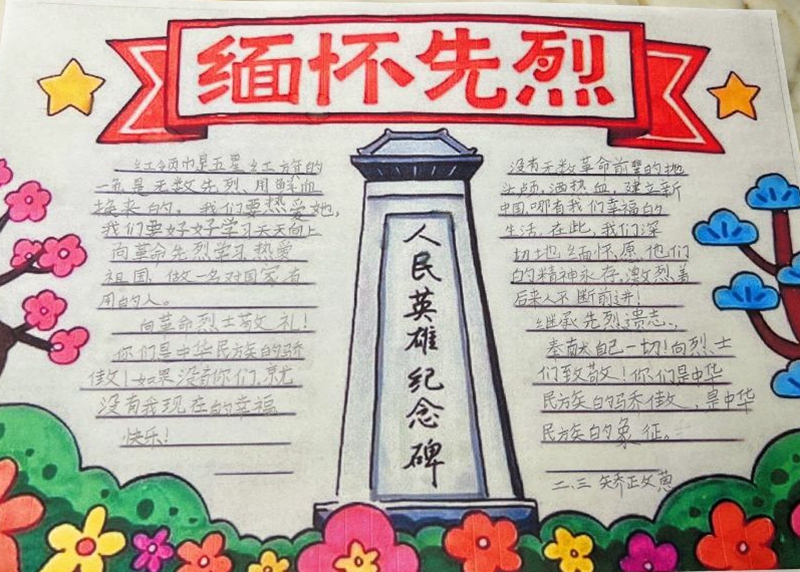 缅怀先烈
红领巾是五星红旗的
一角是无数先烈、用鲜血
换来的。我们要热爱她,
我们要好好学习天天向上
向革命先烈学习,热爱
祖国、做一名对国家有
用的人。
向革命烈士敬礼!
你们是中华民族的骄
傲!如果没有你们,就
没有我现在的幸福
快乐!
人民英雄纪念碑
没有无数革命前辈的抛
头颅,洒热血,建立新
中国,哪有我们幸福的
生活,在此,我们深
切地缅怀,愿他们
的精神永存,激烈着
后来人不断前进!
继承先烈遗志、
奉献自己一切!向烈士
们致敬!你们是中华
民族的骄傲,是中华
民族的象征。
二.三